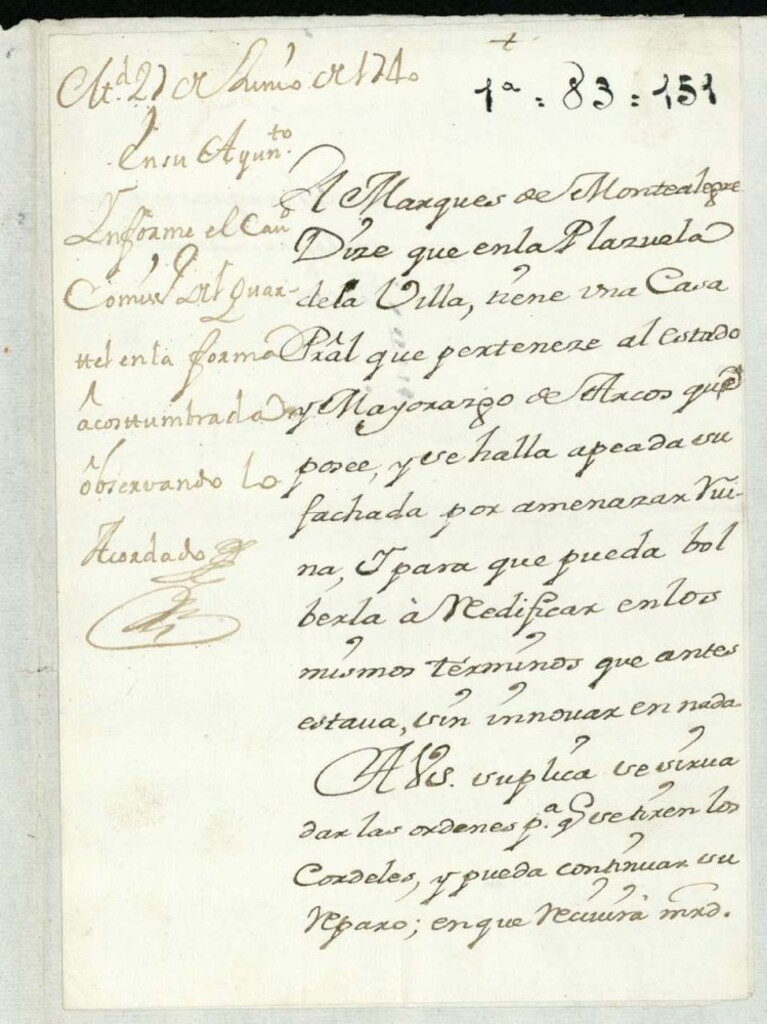 +
1ª = 83 = 151
Md. 27 de Junio de 1740
En su Ayunto.
Ynforme el Cavº
Comisº del Quar-
ttel en la forma
acosttumbrada
observando lo
Acordado
El Marques de Montealegre
Dize que en la Plazuela
de la Villa, tiene vna Casa
Pral que perteneze al estado
y Mayorazgo de Arcos que
posee, y se halla apeada su
fachada por amenazar Rui-
na, Y para que pueda bol
berla à Redificar en los
mismos términos que antes
estaua, sin innouar en nada
A VS. suplica se sirua
dar las ordenes pª. q se tiren los
Cordeles, y pueda continuar su
Reparo; en que Reciuirà mrd.